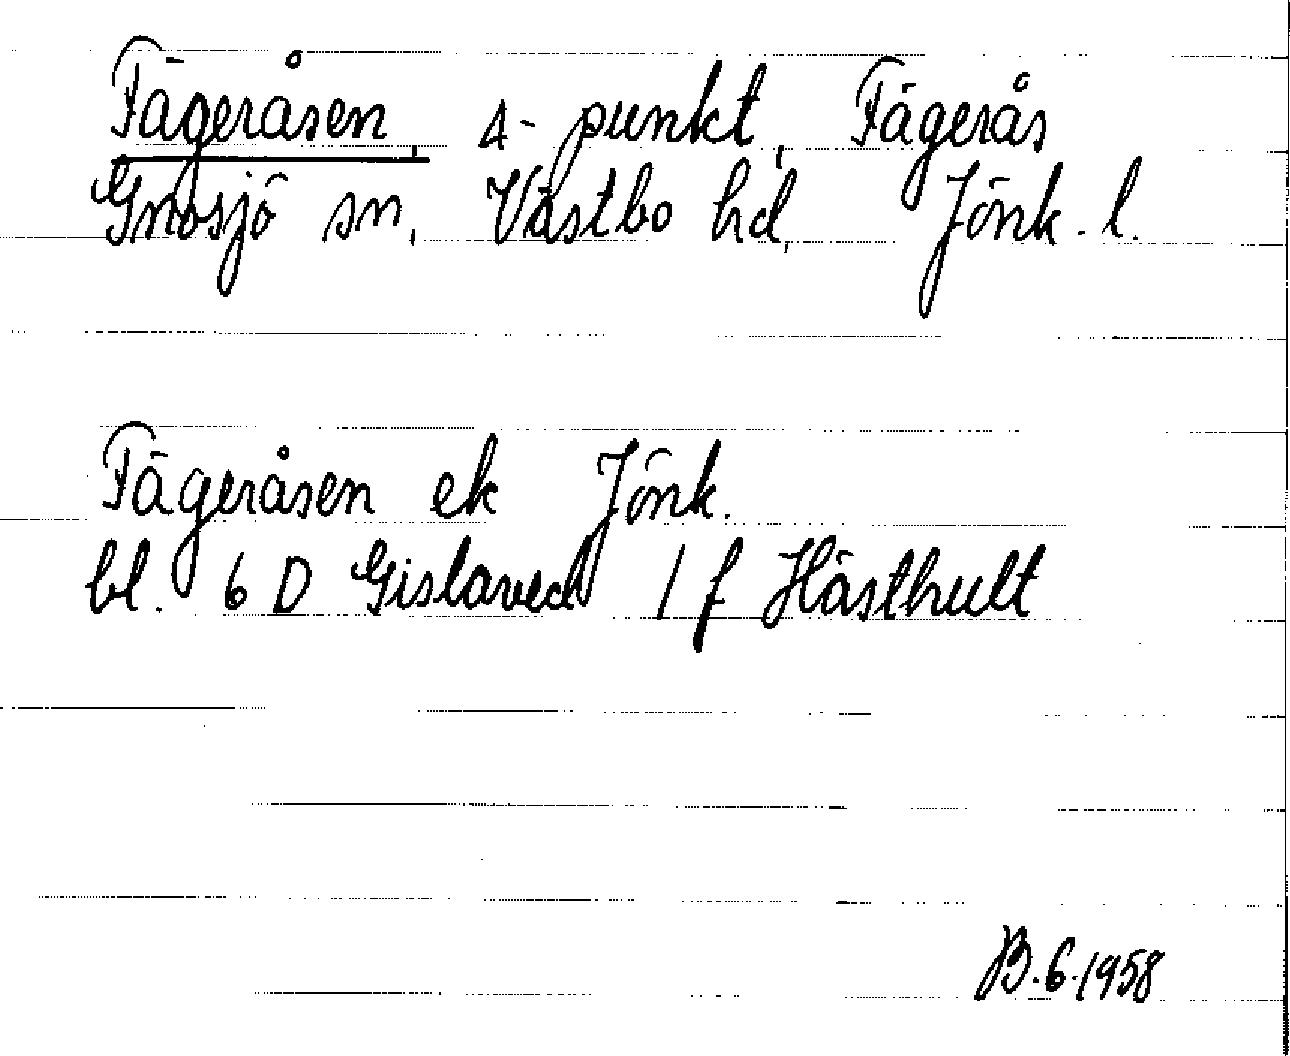 Fägeråsen, Δ-punkt, Fägerås
Gnosjö sn, Västbo hd, Jönk. l.
Fägeråsen ek Jönk.
bl. 6 D Gislaved 1 f Hästhult
B.6.1958